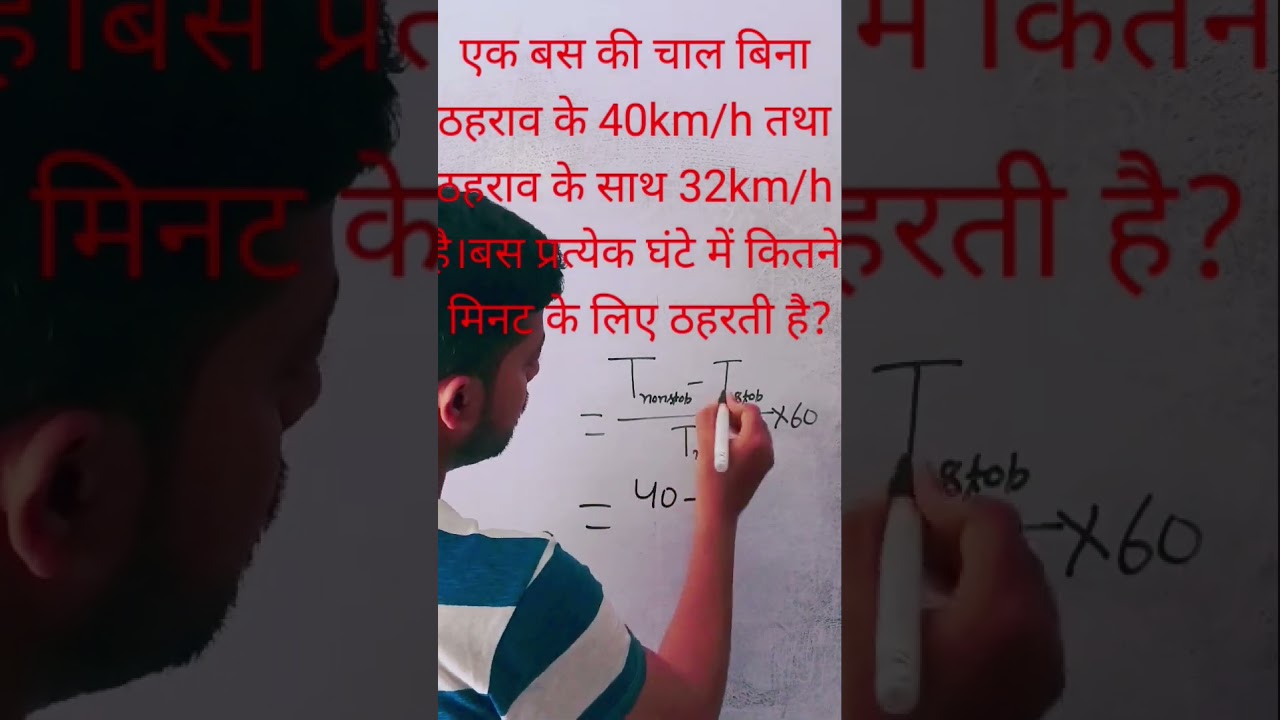 एक बस की चाल बिना
ठहराव के 40km/h तथा
ठहराव के साथ 32km/h
है।बस प्रत्येक घंटे में कितने
मिनट के लिए ठहरती है?
= T nonstop - T stop × 60
T
= 40 -